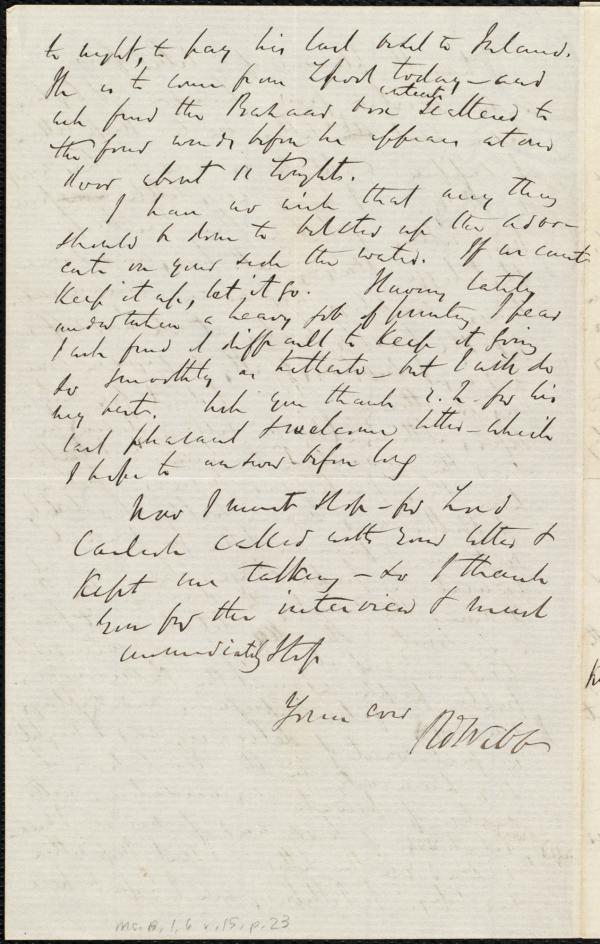 to night, to pay his last visit to Ireland.
He is to come from Lpool today - and
will find the Bazaar box contents scattered to
the four winds before he appears at our
door about 11 tonight.
I have no wish that any thing
should be done to bolster up the Advo-
cate on your side the water. If we can't
keep it up, let it go. Having lately
undertaken a heavy job of printing I fear
I will find it difficult to keep it going
so smoothly as hitherto - but I will do
my best. Will you thank for his
last pleasant & welcome letter - which
I hope to answer before long
Now I must stop - for Lord
Carlisle called with your letter &
kept me talking - so I thank
you for the interview & must
immediately stop
Yours ever
RD Webb
Ms. B. 1. 6 v. 15, p. 23